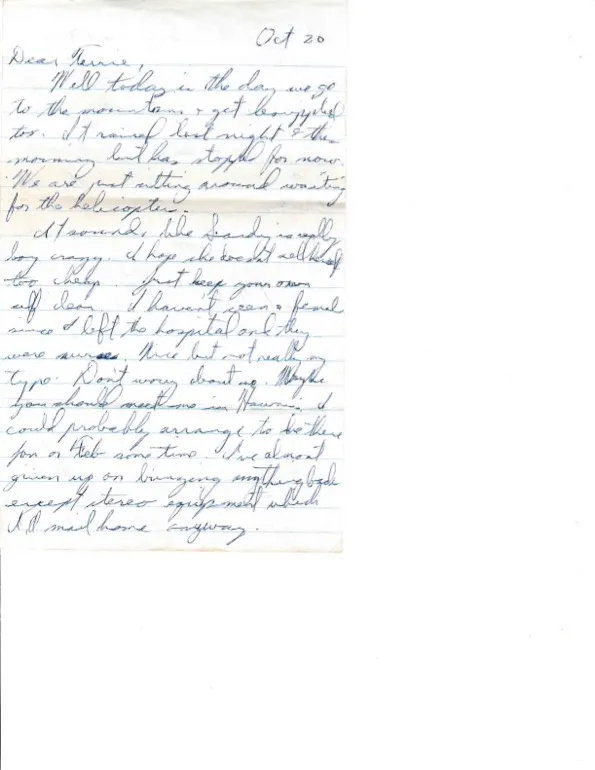 Oct 20
Dear Terrie,
Well today is the day we go
to the mountains & get be supplied
too. It rained last night & this
morning but has stoppd for now.
We are just sitting around waiting
for the helicopter.
It sounds like Sandy is really
boy crazy. I hope she doesn't sell herself
too cheap. Just keep your own
self clean. I haven't seen a female
since I left the hospital and they
were nurses. Nice but not really my
type. Don't worry about me. Maybe
you should meet me in Hawaii. I
could probably arrange to be there
Jan or Feb some time. I've almost
given up on bringing anything back
except stereo equipment which
I'll mail home anyway.